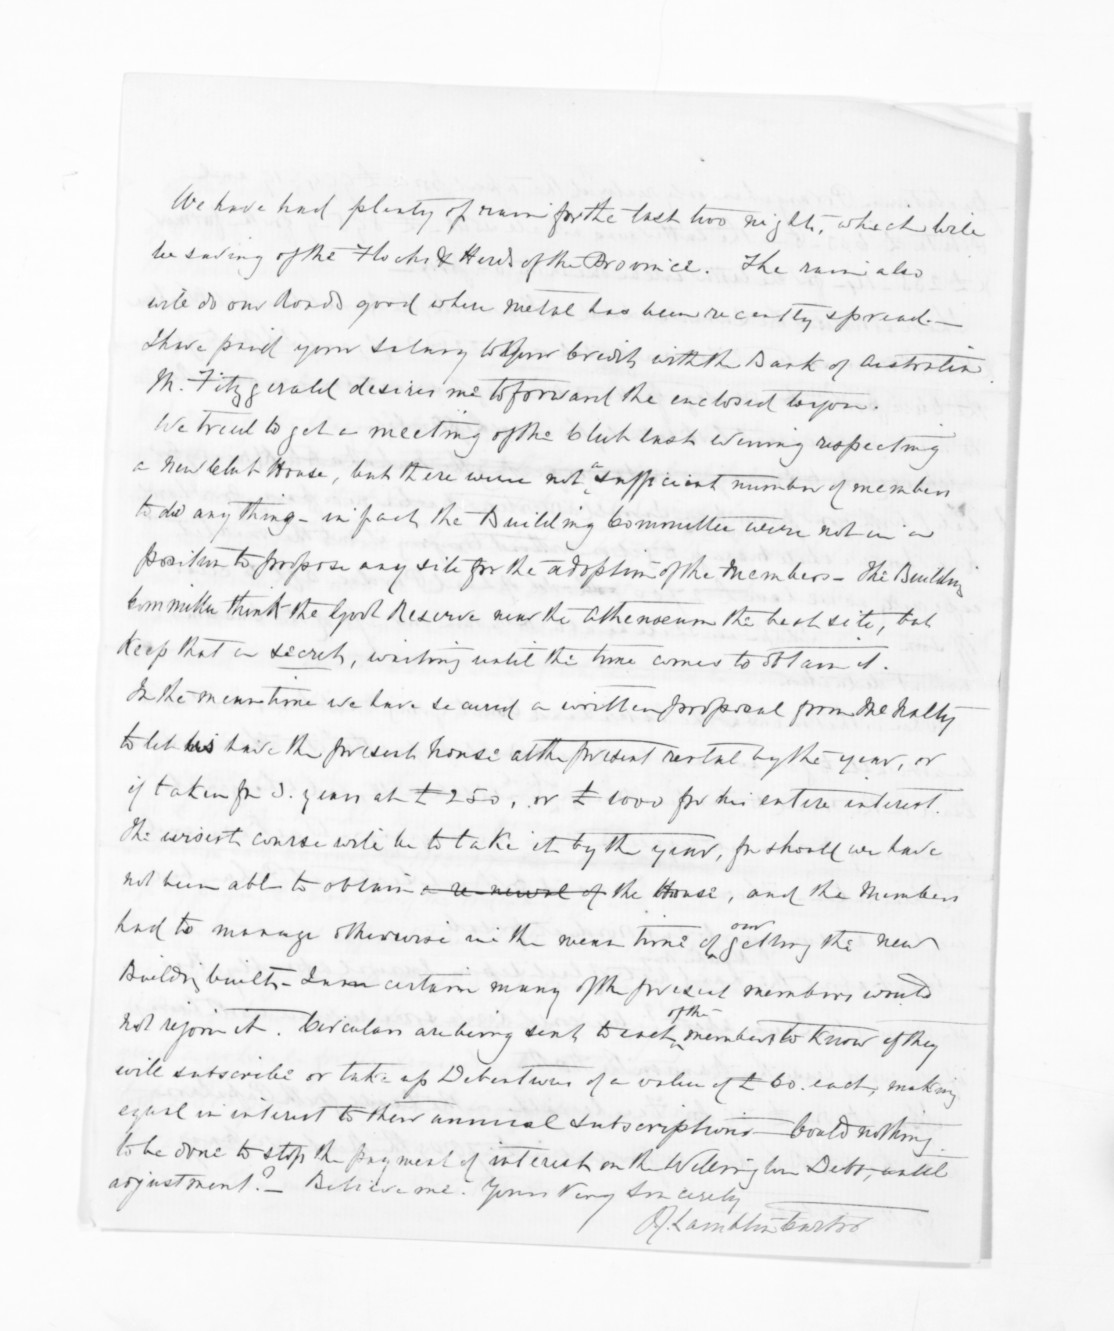 We have had plenty of rain for the last two nights, which will
be saving of the Flocks & Herds of the Province. The rain also
will do our Roads good where metal has been recently spread—
I have paid your salary to your Credit with the Bank of Australia.
Mr. Fitzgerald desires me to forward the enclosed to you.
We tried to get a meeting of the Club last evening respecting
a new Club House, but there were not a sufficient number of members
to do anything – in fact the Building Committee were not in a
position to propose any site for the adoption of the Members – The Building
Committee think the Govt Reserve near the Athenaeum the best site, but
keep that a secret, waiting until the time comes to obtain it.
In the meantime we have secured a written proposal from McNally
to let us have the present house at the present rental by the year, or
if taken for 3. years at £250, or £1000 for his entire interest.
The wisest course will be to take it by the year, for should we have
not been able to obtain a renewal of the House, and the Members
had to manage otherwise in the mean time of our getting the new
Buildg built – I am certain many of the present members would
not rejoin it. Circulars are being sent to each of the members to know if they
will subscribe or take up Debentures of a value of £60. each, making
equal in interest to their annual subscriptions — Could nothing
to be done to stop the payment of interest on the Wellington Debt, until
adjustment? – Believe me. Yours Very Sincerely